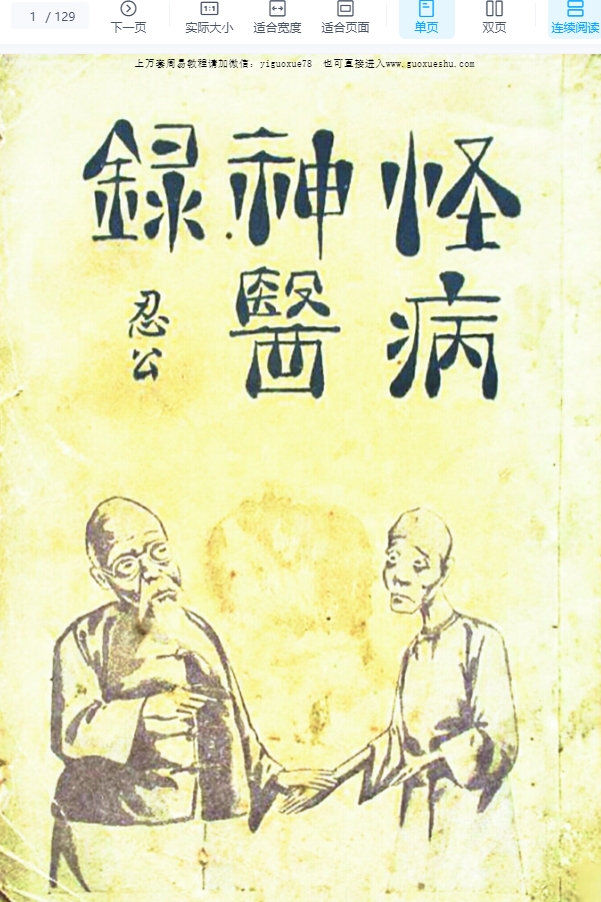 1 / 129
下一页
实际大小
适合宽度
适合页面
单页
双页
连续阅读
上万套周易教程请加微信：yiguoxue78 也可直接进入www.guoxueshu.com
怪病
神醫
録
忍公